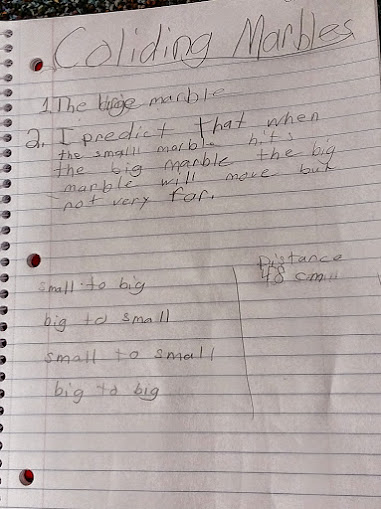 Coliding Marbles
1. The large marble
2. I predict that when
the small marble hits
the big marble the big
marble will move but
not very far.
Distance
small to big 48 cm
big to small
small to small
big to big